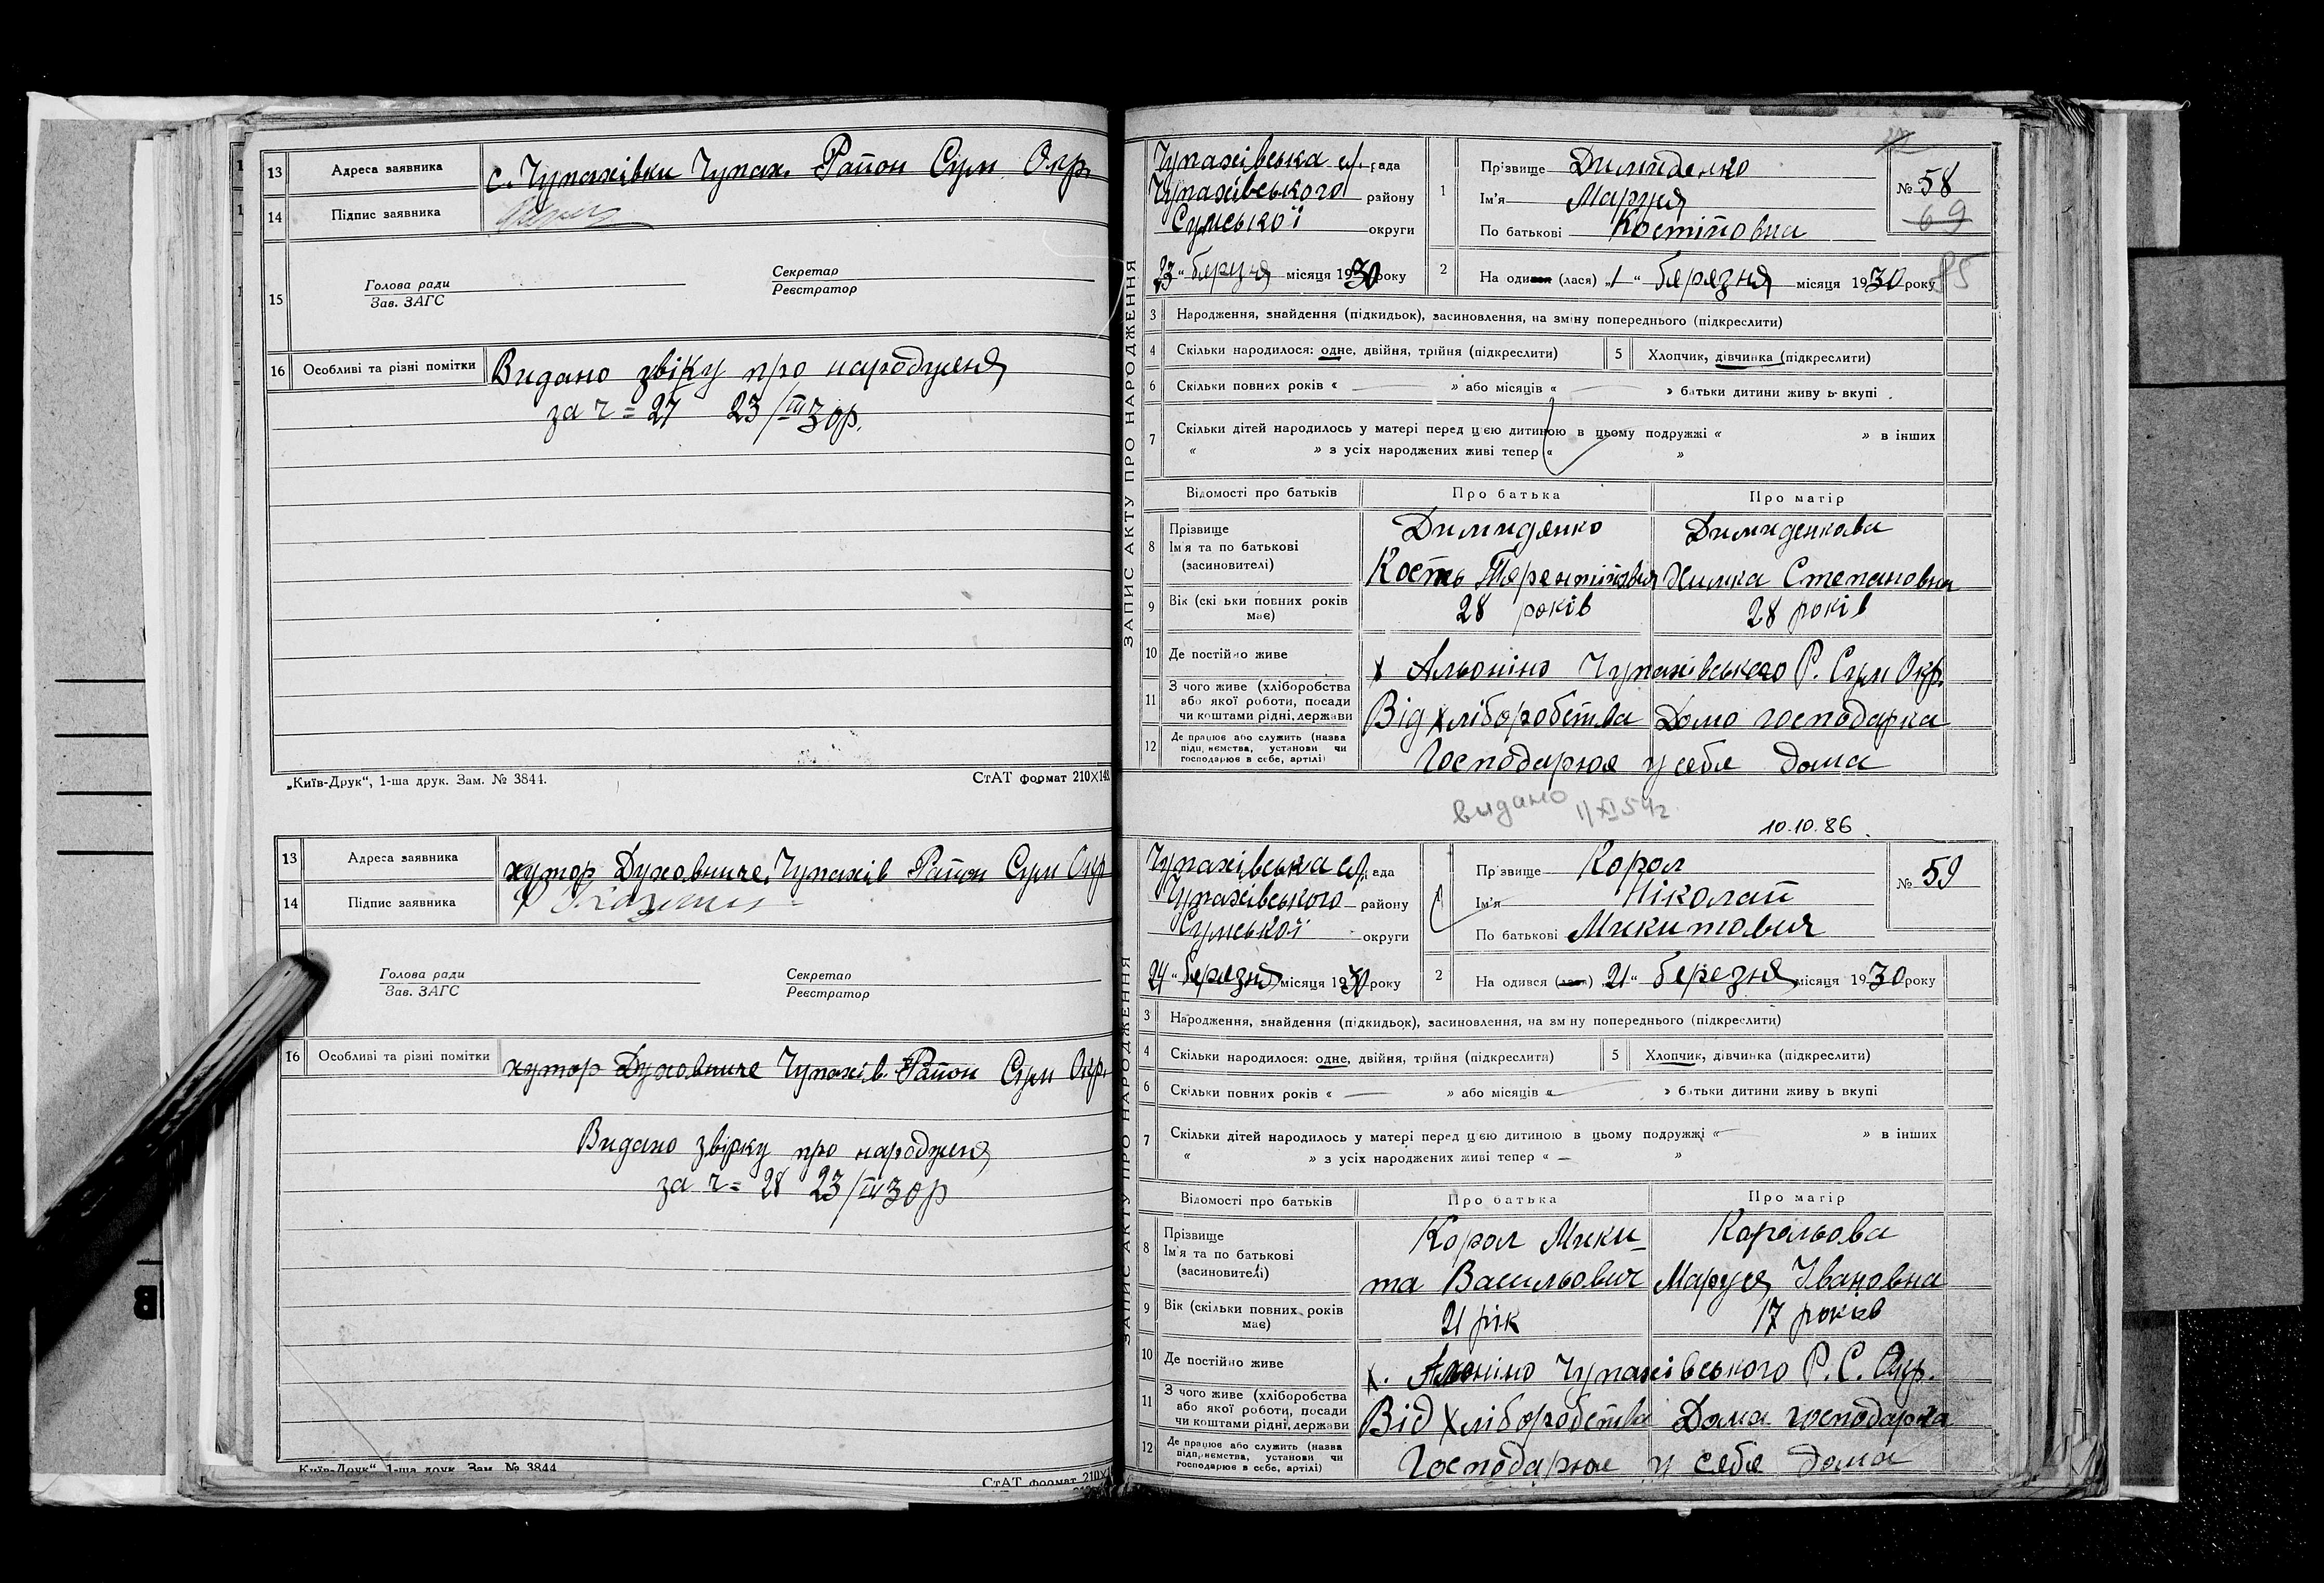 13 Адреса заявника с. Чупахівки Чупах. Район Сум. Окр.
14 Підпис заявника
15 Голова ради Секретар
Зав. ЗАГС Реєстратор
16 Особливі та різні помітки Видано звіку про народженя
за ч = 27 23/III 30р.
„Київ-Друк“, 1-ша друк. Зам. № 3844. СтАТ формат 210×148
13 Адреса заявника хутор Духовниче. Чупахів Район Сум Окр
14 Підпис заявника
Голова ради Секретар
Зав. ЗАГС Реєстратор
16 Особливі та різні помітки хутор Духовниче Чупахів. Район Сум Окр.
Видано звірку про народженя
за ч = 28 23/III 30р
Київ-Друк“ 1-ша друк. Зам. № 3844
СтАТ формат 210×1
ЗАПИС АКТУ ПРО НАРОДЖЕННЯ
Чупахівська с/. рада
Чупахівського району
Сумської округи
23 “ берузня місяця 1930 року
1 Прізвище Димиденко
Ім'я Маруся
По батькові Костіновна
№ 58
69
85
2 На один (лася) „1“ бярязня місяця 1930 року
3 Народження, знайдення (підкидьок), засиновлення, на зміну попереднього (підкреслити)
4 Скільки народилося: одне, двійня, трійня (підкреслити) 5 Хлопчик, дівчинка (підкреслити)
6 Скільки повних років « — » або місяців « — » батьки дитини живу ь вкупі .
7 Скільки дітей народилось у матері перед цією дитиною в цьому подружжі « » в інших
« » з усіх народжених живі тепер « »
Відомості про батьків Про батька Про матір
8 Прізвище Димидянко Димиденкова
Ім'я та по батькові
(засиновителі) Кость Химка Степановна
9 Вік (скі ьки повних років має) 28 років 28 років
10 Де постійно живе х Альоніно Чупахівського Р. Сум Окр.
11 З чого живе (хліборобства або якої роботи, посади чи коштами рідні, держави Від хліборобства Домо господарка
12 Де працює або служить (назва підприємства, установи чи господарює в себе, артілі) Господарюя у себя дома
видано 1/XI 54г
10.10.86.
ЗАПИС АКТУ ПРО НАРОДЖЕННЯ
Чупахівська с/. ада
Чупахівського району
Сумської округи
24 “ березня місяця 1930 року
1 Прізвище Корол
Ім'я Ніколай
По батькові Микитович
№ 59
2 На одився (лася) „21“ березня місяця 1930 року
3 Народження, знайдення (підкидьок), засиновлення, на зміну попереднього (підкреслити)
4 Скільки народилося: одне, двійня, трійня (підкреслити) 5 Хлопчик, дівчинка (підкреслити)
6 Скільки повних років « — » або місяців « — » батьки дитини живу ь вкупі
7 Скільки дітей народилось у матері перед цією дитиною в цьому подружжі « — » в інших
« » з усіх народжених живі тепер « — »
Відомості про батьків Про батька Про матір
8 Прізвище Корол Мики- Карольова
Ім'я та по батькові
(засиновителі) та Васильович Маруся Івановна
9 Вік (скільки повних років має) 21 рік 17 років
10 Де постійно живе х. Альоніно Чупахівського Р. С. Окр.
11 З чого живе (хліборобства або якої роботи, посади чи коштами рідні, держави Від хліборобства Дома господарка
12 Де працює або служить (назва підприємства, установи чи господарює в себе, артілі) Господарює у себя дома